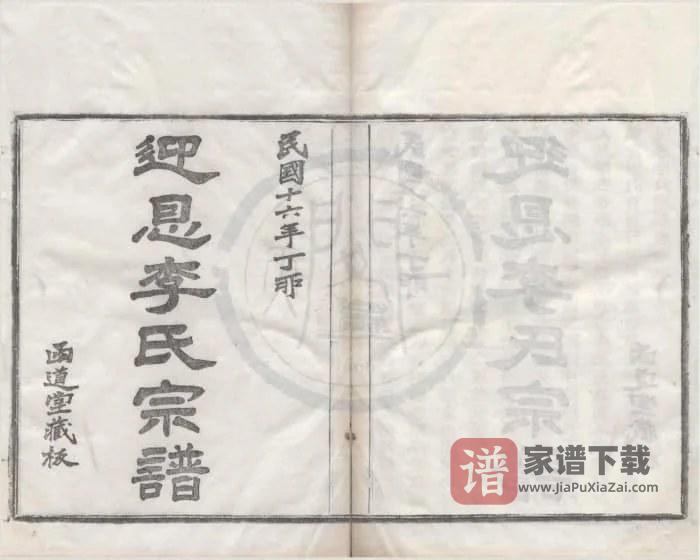 民國十六年丁卯
迎恩李氏宗譜
函道堂藏板
谱 家谱下载
www.JiaPuXiaZai.com